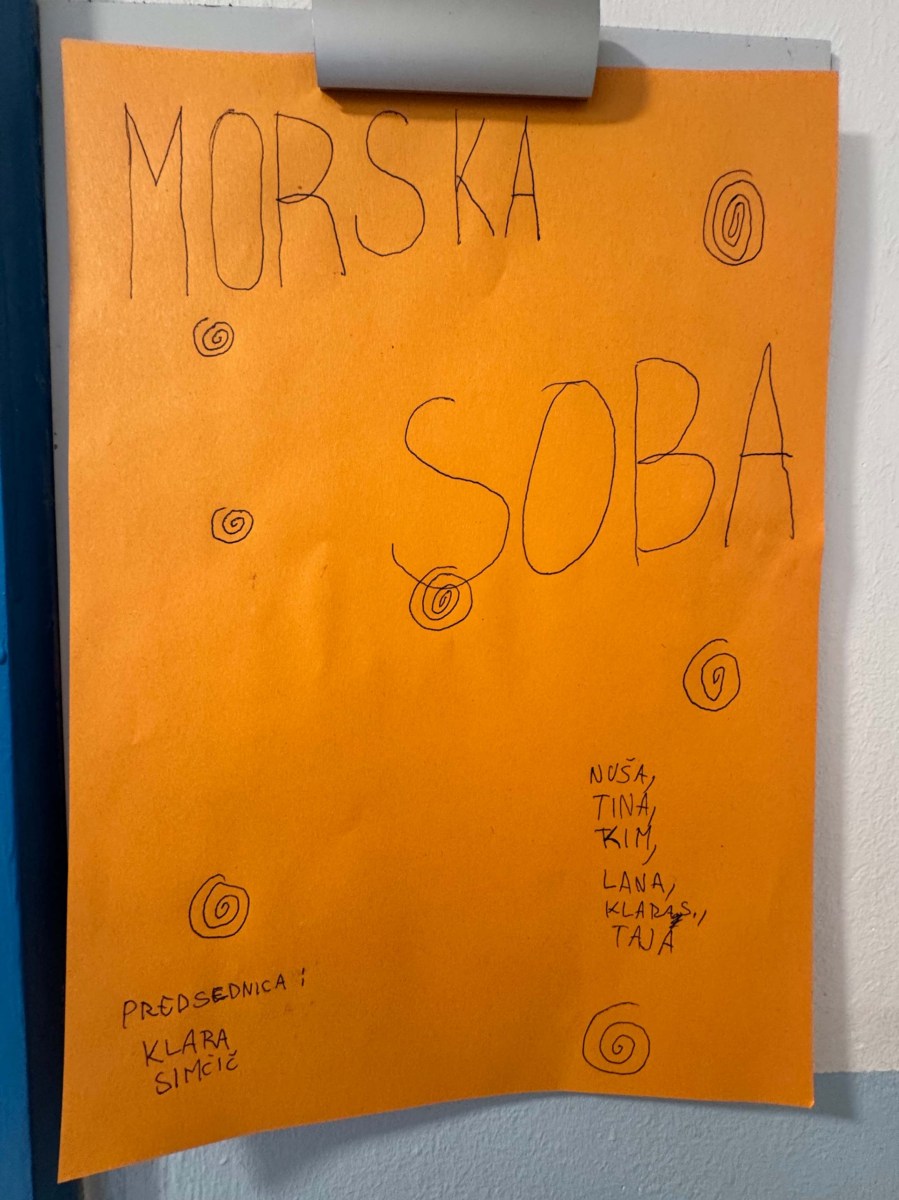 MORSKA
SOBA
NUŠA,
TINA,
KIM,
LANA,
KLARA S.,
TAJA
PREDSEDNICA:
KLARA
SIMČIČ